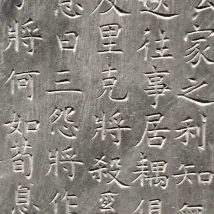 公家之利知無
送往事居耦俱
及里克將殺奚
息曰三怨將作
將何如荀息